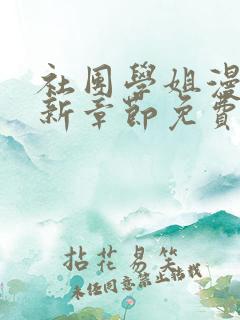 社团學姐漫
新章節免費
拈花易笑
未经同意禁止转载